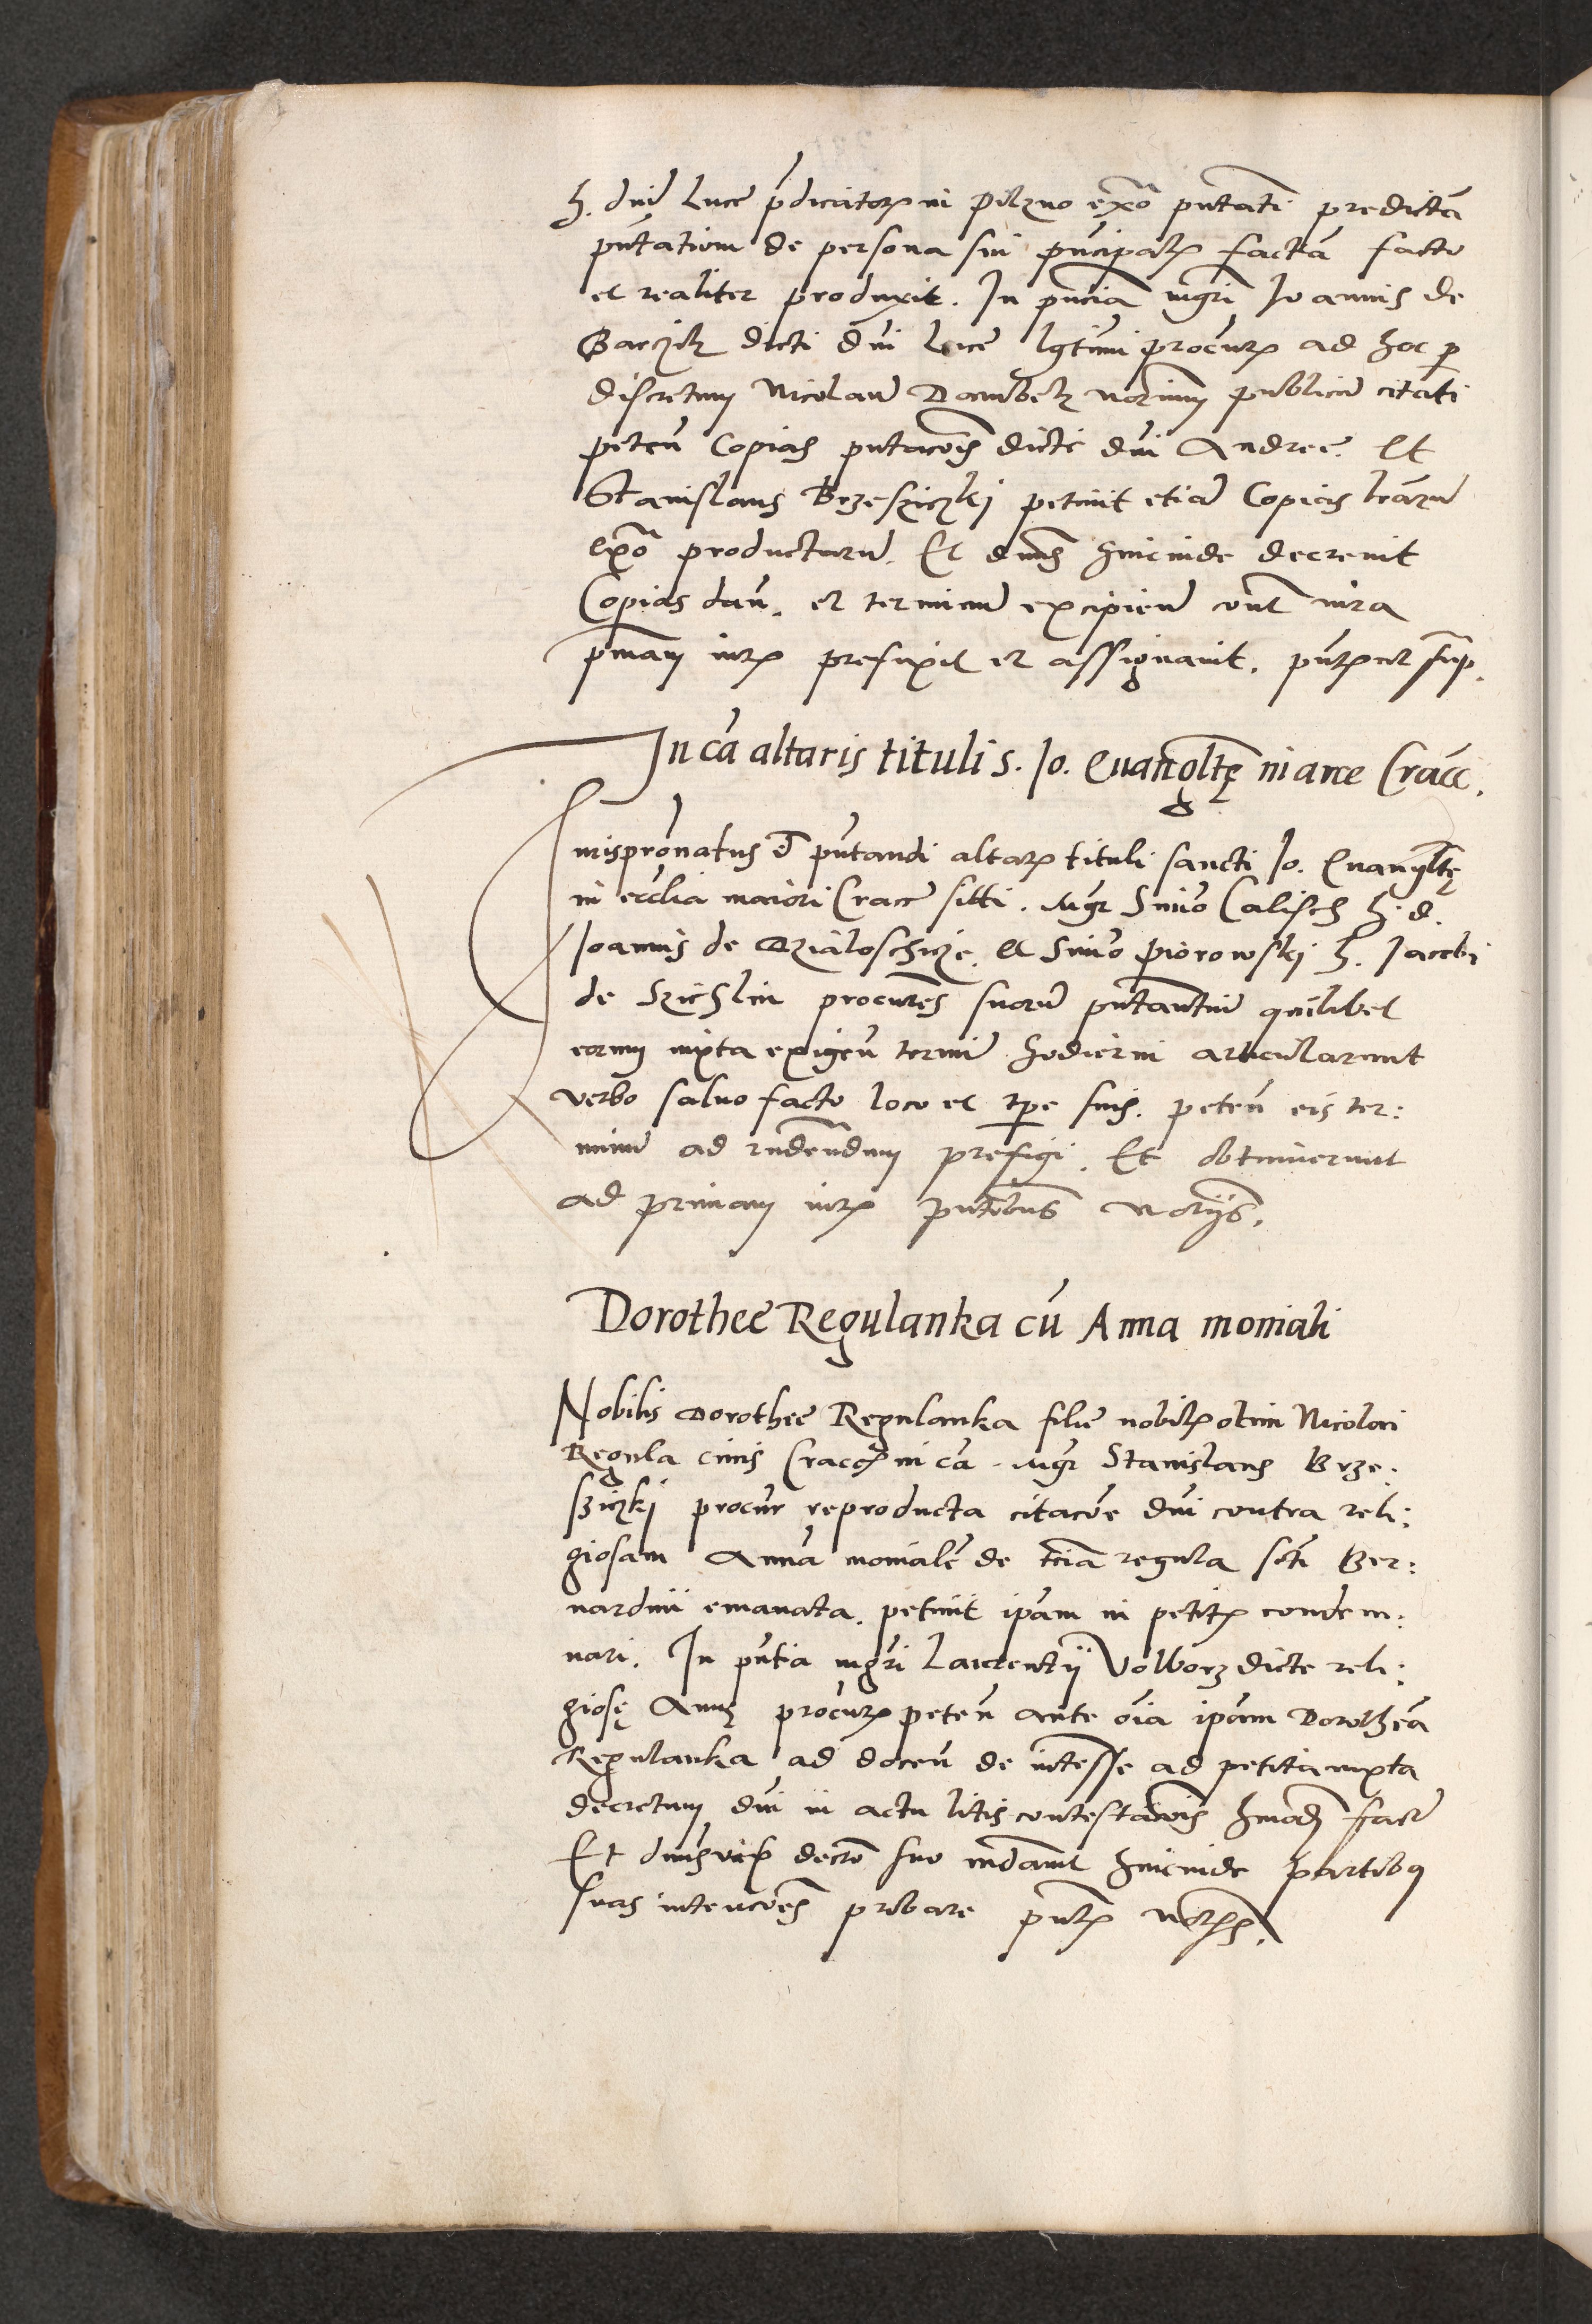 h. dni Luce pdicatoris in Pilzno exo pntati predictã
pntationem de persona sui principalis factã facto
et realiter produxit. In pncia mgri Joannis de
dicti dni Luce lgtimi procuris ad hoc p
discretum Nicolaum notarium publicũ citati
peteñ Copias pntacois dicti dni Andree. Et
Stanislaus Brzesziczkj petiuit etiã Copias lrarũ
exo productarũ. Et dnus hincinde decreuit
Copias dañ. et terminũ excipieñ cont
primam iuris prefixit et assignauit. pntibus ut sup.
In cã altaris tituli s. Jo. Euangeltę in arce Cracc.
Jurispronatus et pntandi altaris tituli sancti Jo. Euangltę
in ecclia maiori Cracc siti. Mgr Simo Calisch h. d.
Joannis de Dzialoschicze. et Simo Piorowskj h. Jacobi
de procures suorũ pntantiũ quilibet
eorum iuxta exigeñ termini hodierni articularunt
verbo saluo facto loco et tpe suis. peteñ eis ter:
minũ ad rndendum prefigi. Et obtinuerunt
ad primam iuris pntibus notariis.
Dorothee Regulanka cũ Anna moniali
Nobilis Dorothee Regulanka filie nobilis olim Nicolai
Regula ciuis Cracc in cã. Mgr Stanislaus Brze:
sziczkj procur reproducta citacoe dni contra reli:
giosam Annã monialẽ de tcia regula scti Ber:
nardini emanata. petiuit ipam in petitis condem:
nari. In pntia mgri Laurentii Volborz dicte reli:
giosę Annę procuris peteñ ante oia ipam Dorotheã
Regulanka ad doceñ de interesse ad petita iuxta
decretum dni in actu litis contestacois hmodi fact
Et dnus decreto suo mandauit hincinde partibus
suas intencoes probare pntibus notariis.